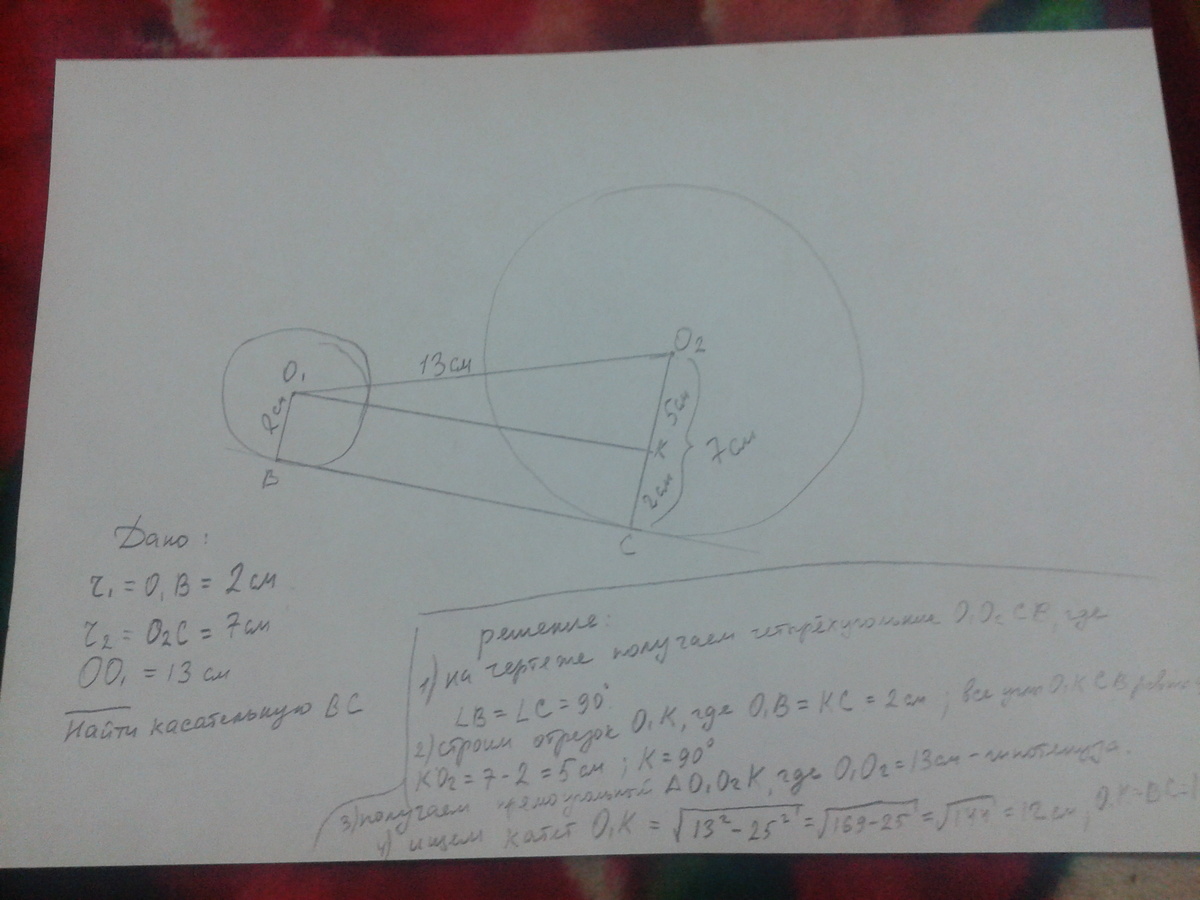 O₁
13 см
O₂
2 см
5 см
K
7 см
2 см
B
C
Дано:
r₁ = O₁B = 2 см
r₂ = O₂C = 7 см
OO₁ = 13 см
Найти касательную BC
решение:
1) на чертеже получаем четырёхугольник O₁O₂CB, где
∠B = ∠C = 90°
2) строим отрезок O₁K, где O₁B = KC = 2 см; все углы O₁KCB равны
KO₂ = 7 - 2 = 5 см; K = 90°
3) получаем прямоугольный Δ O₁O₂K, где O₁O₂ = 13 см - гипотенуза.
4) ищем катет O₁K = √13² - 25² = √169 - 25 = √144 = 12 см, O₁K = BC =